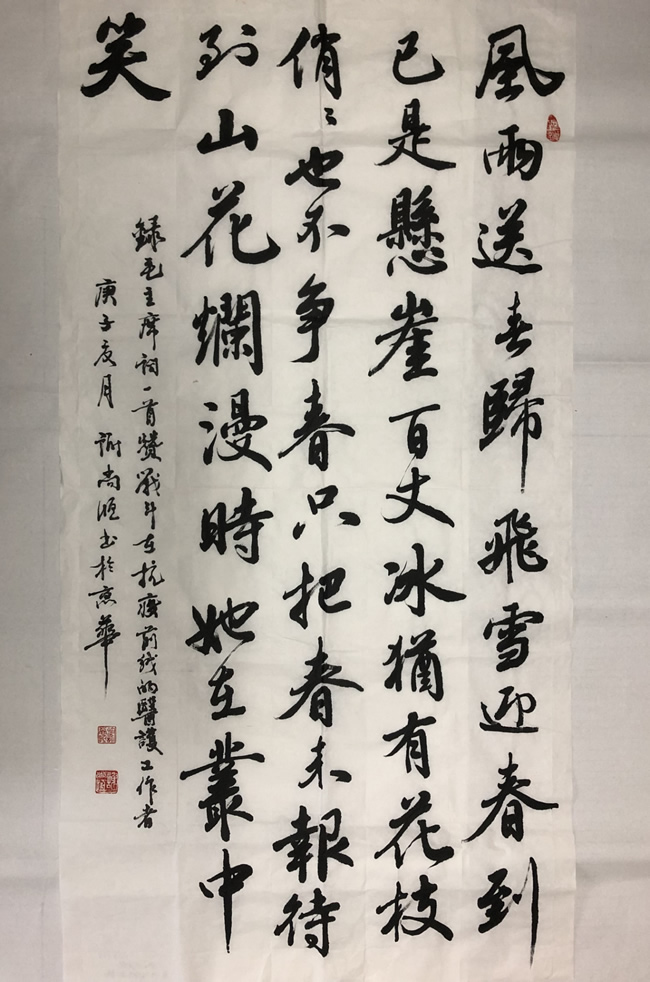 風雨送春歸飛雪迎春到
已是懸崖百丈冰猶有花枝
俏〻也不争春只把春未報待
到山花爛漫時她在叢中
笑
録毛主席詞一首賛戰斗在抗疫前线的醫護工作者
庚子夏月 谢尚恒书於京華